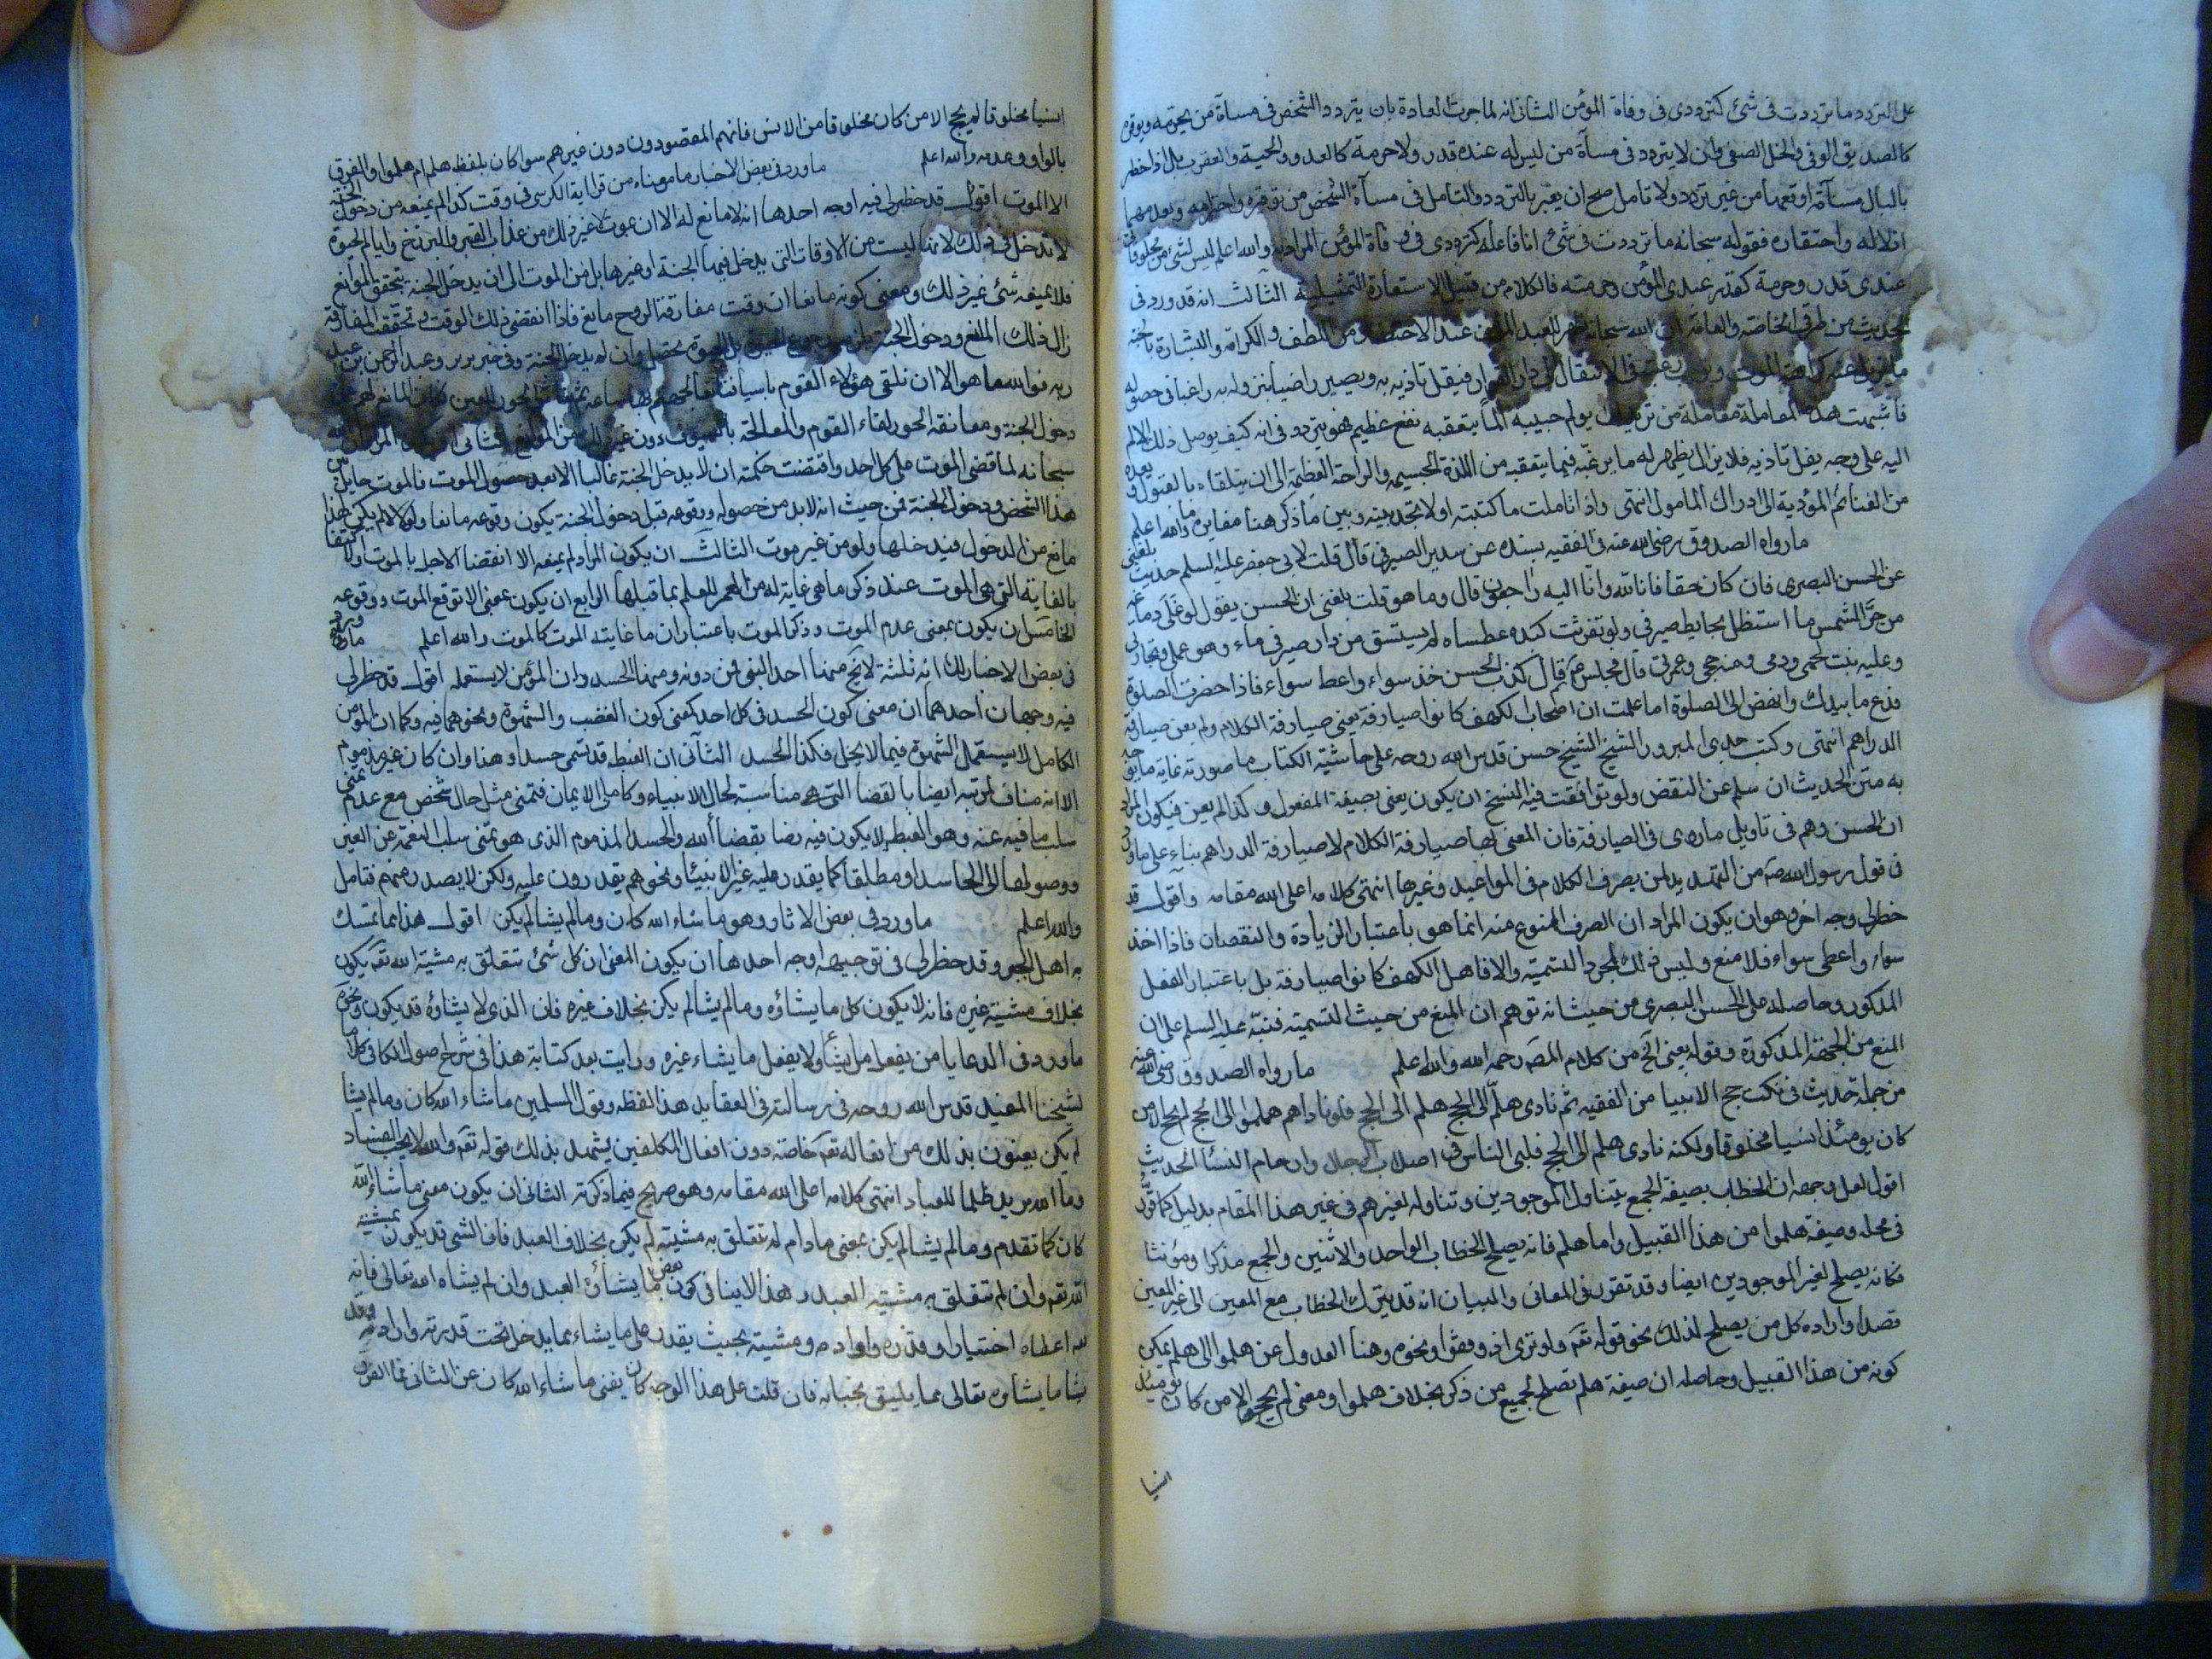 على التردد ما ترددت في شئ كترددي في وفاة المؤمن الثاني انه لما جرت العادة بان يتردد الشخص في مسآة من يحترمه ويوقره
كالصديق الوفي والخل الصفي وان لا يتردد في مسآة من ليس له عنده قدر ولا حرمة كالعدو والحية والعقرب بل اذا خطر
بالبال مسآته اوقعها من غير تردد ولا تامل صح ان يعبر بالتردد والتامل في مسآة الشخص من توقيره واحترامه وبعدمهما
اذلاله واحتقاره فقوله سبحانه ما ترددت في شئ انا فاعله كترددي في وفاة المؤمن المراد به والله اعلم ليس لشئ من مخلوقاتي
عندي قدر وحرمة كقدر عبدي المؤمن وحرمته فالكلام من قبيل الاستعارة التمثيلية الثالث انه قد ورد في
الحديث من طرق الخاصة والعامة ان الله سبحانه يظهر للعبد المؤمن عند الاحتضار من اللطف والكرامة والبشارة بالجنة
ما يزيل عنه كراهة الموت ويوجب رغبته في الانتقال الى دار القرار فيقل تاذيه به ويصير راضيا بنزوله به راغبا في حصوله
فاشبهت هذه المعاملة معاملة من يريد ان يولم حبيبه الما يتعقبه نفع عظيم فهو يتردد في انه كيف يوصل ذلك الالم
اليه على وجه يقل تاذيه فلا يزال يظهر له ما يرغبه فيما يتعقبه من اللذة الجسيمة والراحة العظيمة الى ان يتلقاه بالقبول ويعده
من الغنائم المؤدية الى ادراك المامول انتهى واذا تاملت ما كتبته اولا تجد بينه وبين ما ذكر هنا مغايرة ما والله اعلم
ما رواه الصدوق رضي الله عنه في الفقيه بسنده عن سدير الصيرفي قال قلت لابي جعفر عليه السلم حديث بلغني
عن الحسن البصري فان كان حقا فانا لله وانا اليه راجعون قال وما هو قلت بلغني ان الحسن يقول لو غلى دماغه
من حر الشمس ما استظل بحايط صيرفي ولو تفرثت كبده عطسا لم يستسق من دار صيرفي ماء وهو عملي وتجارتي
وعليه نبت لحمي ودمي ومنه حجي وعمرتي قال فجلس ثم قال كذب الحسن خذ سواء واعط سواء فاذا حضرت الصلوة
فدع ما بيدك وانهض الى الصلوة اما علمت ان اصحاب الكهف كانوا صيارفة يعني صيارفة الكلام ولم يعن صيارفة
الدراهم انتهى وكتب جدي المبرور الشيخ الشيخ حسن قدس الله روحه على حاشية الكتاب ما صورته غاية ما يوجه
به متن الحديث ان سلم عن النقض ولو توافقت فيه النسخ ان يكون يعني بصيغة المفعول وكذا لم يعن فيكون المراد
ان الحسن وهم في تاويل ما روى في الصيارفة فان المعنى بها صيارفة الكلام لا صيارفة الدراهم بناء على ما ورد
في قول رسول الله صه من التهديد لمن يصرف الكلام في المواعيد وغيرها انتهى كلامه اعلى الله مقامه واقول قد
خطر لي وجه اخر وهو ان يكون المراد ان الصرف الممنوع منه انما هو باعتبار الزيادة والنقصان فاذا اخذ
سواء واعطى سواء فلا منع وليس ذلك لمجرد التسمية والا فاهل الكهف كانوا صيارفة بل باعتبار الفعل
المذكور وحاصله على الحسن البصري من حيث انه توهم ان المنع من حيث التسمية فنبه عليه السلم على ان
المنع من الجهة المذكورة وقوله يعني الخ من كلام المصه رحمه الله والله اعلم ما رواه الصدوق رضي الله عنه
من جملة حديث في نكت حج الانبيا من الفقيه ثم نادى هلم الى الحج هلم الى الحج فلو ناداهم هلموا الى الحج لم يحج الا من
كان يومئذ انسيا مخلوقا ولكنه نادى هلم الى الحج فلبى الناس في اصلاب الرجال وارحام النسأ الحديث
اقول لعل وجهه ان الخطاب بصيغة الجمع يتناول الموجودين وتناوله لغيرهم في غير هذا المقام بدليل كما قرر
في محله وصيغة هلموا من هذا القبيل واما هلم فانه يصلح لخطاب الواحد والاثنين والجمع مذكرا ومؤنثا
فكانه يصلح لغير الموجودين ايضا وقد تقرر في المعاني والبيان انه قد يترك الخطاب مع المعين الى غير المعين
قصدا وارادة كل من يصلح لذلك نحو قوله تعه ولو ترى اذ وقفوا ونحوه وهنا العدول عن هلموا الى هلم يمكن
كونه من هذا القبيل وحاصله ان صيغة هلم تصلح لجميع من ذكر بخلاف هلموا ومعنى لم يحج الا من كان يومئذ
انسيا
انسيا مخلوقا لم يحج الا من كان مخلوقا من الانس فانهم المقصودون دون غيرهم سوا كان بلفظ هلم ام هلموا والفرق
بالواو وعدمه والله اعلم ما ورد في بعض الاخبار ما معناه من قرا اية الكرسي في وقت كذا لم يمنعه من دخول الجنة
الا الموت اقول قد خطر لي فيه اوجه احدها انه لا مانع له الا ان يموت لا غير ذلك من عذاب القبر والبرزخ وايام الحيوة
لا تدخل في ذلك لانها ليست من الاوقات التي يدخل فيها الجنة او غيرها بل من الموت الى ان يدخل الجنة يتحقق الموانع
فلا يمنعه شئ غير ذلك ومعنى كونه مانعا ان وقت مفارقة الروح مانع فاذا انقضى ذلك الوقت وتحققت المفارقة
زال ذلك المانع ودخول الجنة وان لم يدخل الجنة وفي خبر برير وعبد الرحمن بن عبد
ربه فوالله ما هو الا ان نلقى هؤلاء القوم باسيافنا نعالجهم بها ساعة ثم نعانق الحور العين فكان المانع لهم من
دخول الجنة ومعانقة الحور لقاء القوم والمعالجة بالسيوف دون غير ذلك من الموانع الثاني ان الله
سبحانه لما قضى الموت على كل احد واقتضت حكمته ان لا يدخل الجنة غالبا الا بعد حصول الموت فالموت حايل بين
هذا الشخص ودخول الجنة فمن حيث انه لا بد من حصوله ووقوعه قبل دخول الجنة يكون وقوعه مانعا ولولا لم يكن هذا
مانع من الدخول فيدخلها ولو من غير موت الثالث ان يكون المراد لم يمنعه الا انقضا الاجل بالموت اكتفا
بالغاية التي هي الموت عند ذكر ما هي غاية له من العمر للعلم بما قبلها الرابع ان يكون بمعنى الا توقع الموت ووقوعه
الخامس ان يكون بمعنى عدم الموت وذكر الموت باعتبار ان ما غايته الموت كالموت والله اعلم ما روى
في بعض الاخبار انه ثلثة لا ينج منها احد النبي فمن دونه ومنها الحسد وان المؤمن لا يستعمله اقول قد خطر لي
فيه وجهان احدهما ان معنى كون الحسد في كل احد كمعنى كون الغضب والشهوة ونحوهما فيه وكما ان المؤمن
الكامل لا يستعمل الشهوة فيما لا يحل فكذا الحسد الثاني ان الغبطة قد تسمى حسدا وهنا وان كان غير مذموم
الا انه مناف لمرتبة الرضا بالقضا التي هي مناسبة لحال الانبياء وكاملي الايمان فتمنى مثل حال شخص مع عدم تمنى
سلب ما فيه عنه وهو الغبطة لا يكون فيه رضا بقضا الله والحسد المذموم الذي هو تمني سلب النعمة عن الغير
ووصولها الى الحاسد او مطلقا كما يقدر عليه غير الانبيأ ونحوهم يقدرون عليه ولكن لا يصدر منهم فتامل
والله اعلم ما ورد في بعض الاثار وهو ما شاء الله كان وما لم يشا لم يكن اقول هذا مما تمسك
به اهل الجبر وقد خطر لي في توجيهه اوجه احدها ان يكون المعنى ان كل شئ تتعلق به مشية الله تعه يكون
بخلاف مشية غيره فانه لا يكون كل ما يشاؤه وما لم يشا لم يكن بخلاف غيره فان الذي لا يشاؤه قد يكون ونحوه
ما ورد في الدعا يا من يفعل ما يشأ ولا يفعل ما يشاء غيره ورايت بعد كتابة هذا في شرح اصول الكافي كلاما
لشيخنا المفيد قدس الله روحه في رسالته في العقايد هذا لفظه وقول المسلمين ما شاء الله كان وما لم يشا
لم يكن يعنون بذلك من افعاله تعه خاصة دون افعال المكلفين يشهد بذلك قوله تعه والله لا يحب الفساد
وما الله يريد ظلما للعباد انتهى كلامه اعلى الله مقامه وهو صريح فيما ذكرته الثاني ان يكون معنى ما شاء الله
كان كما تقدم وما لم يشا لم يكن بمعنى ما دام لم تتعلق به مشيته لم يكن بخلاف العبد فان الشئ قد يكون بمشية
الله تعه وان لم تتعلق به مشية العبد وهذا لا ينافي كون بعض ما يشاؤه العبد وان لم يشاه الله تعالى فانه
اعطاه اختيارا وقدرة وارادة ومشية بحيث يقدر على ما يشاء مما يدخل تحت قدرته وارادته
يشا ما يشاوه تعالى مما يليق بجنابه فان قلت على هذا الوجه كان يغني ما شاء الله كان عن الثاني فما الفرق